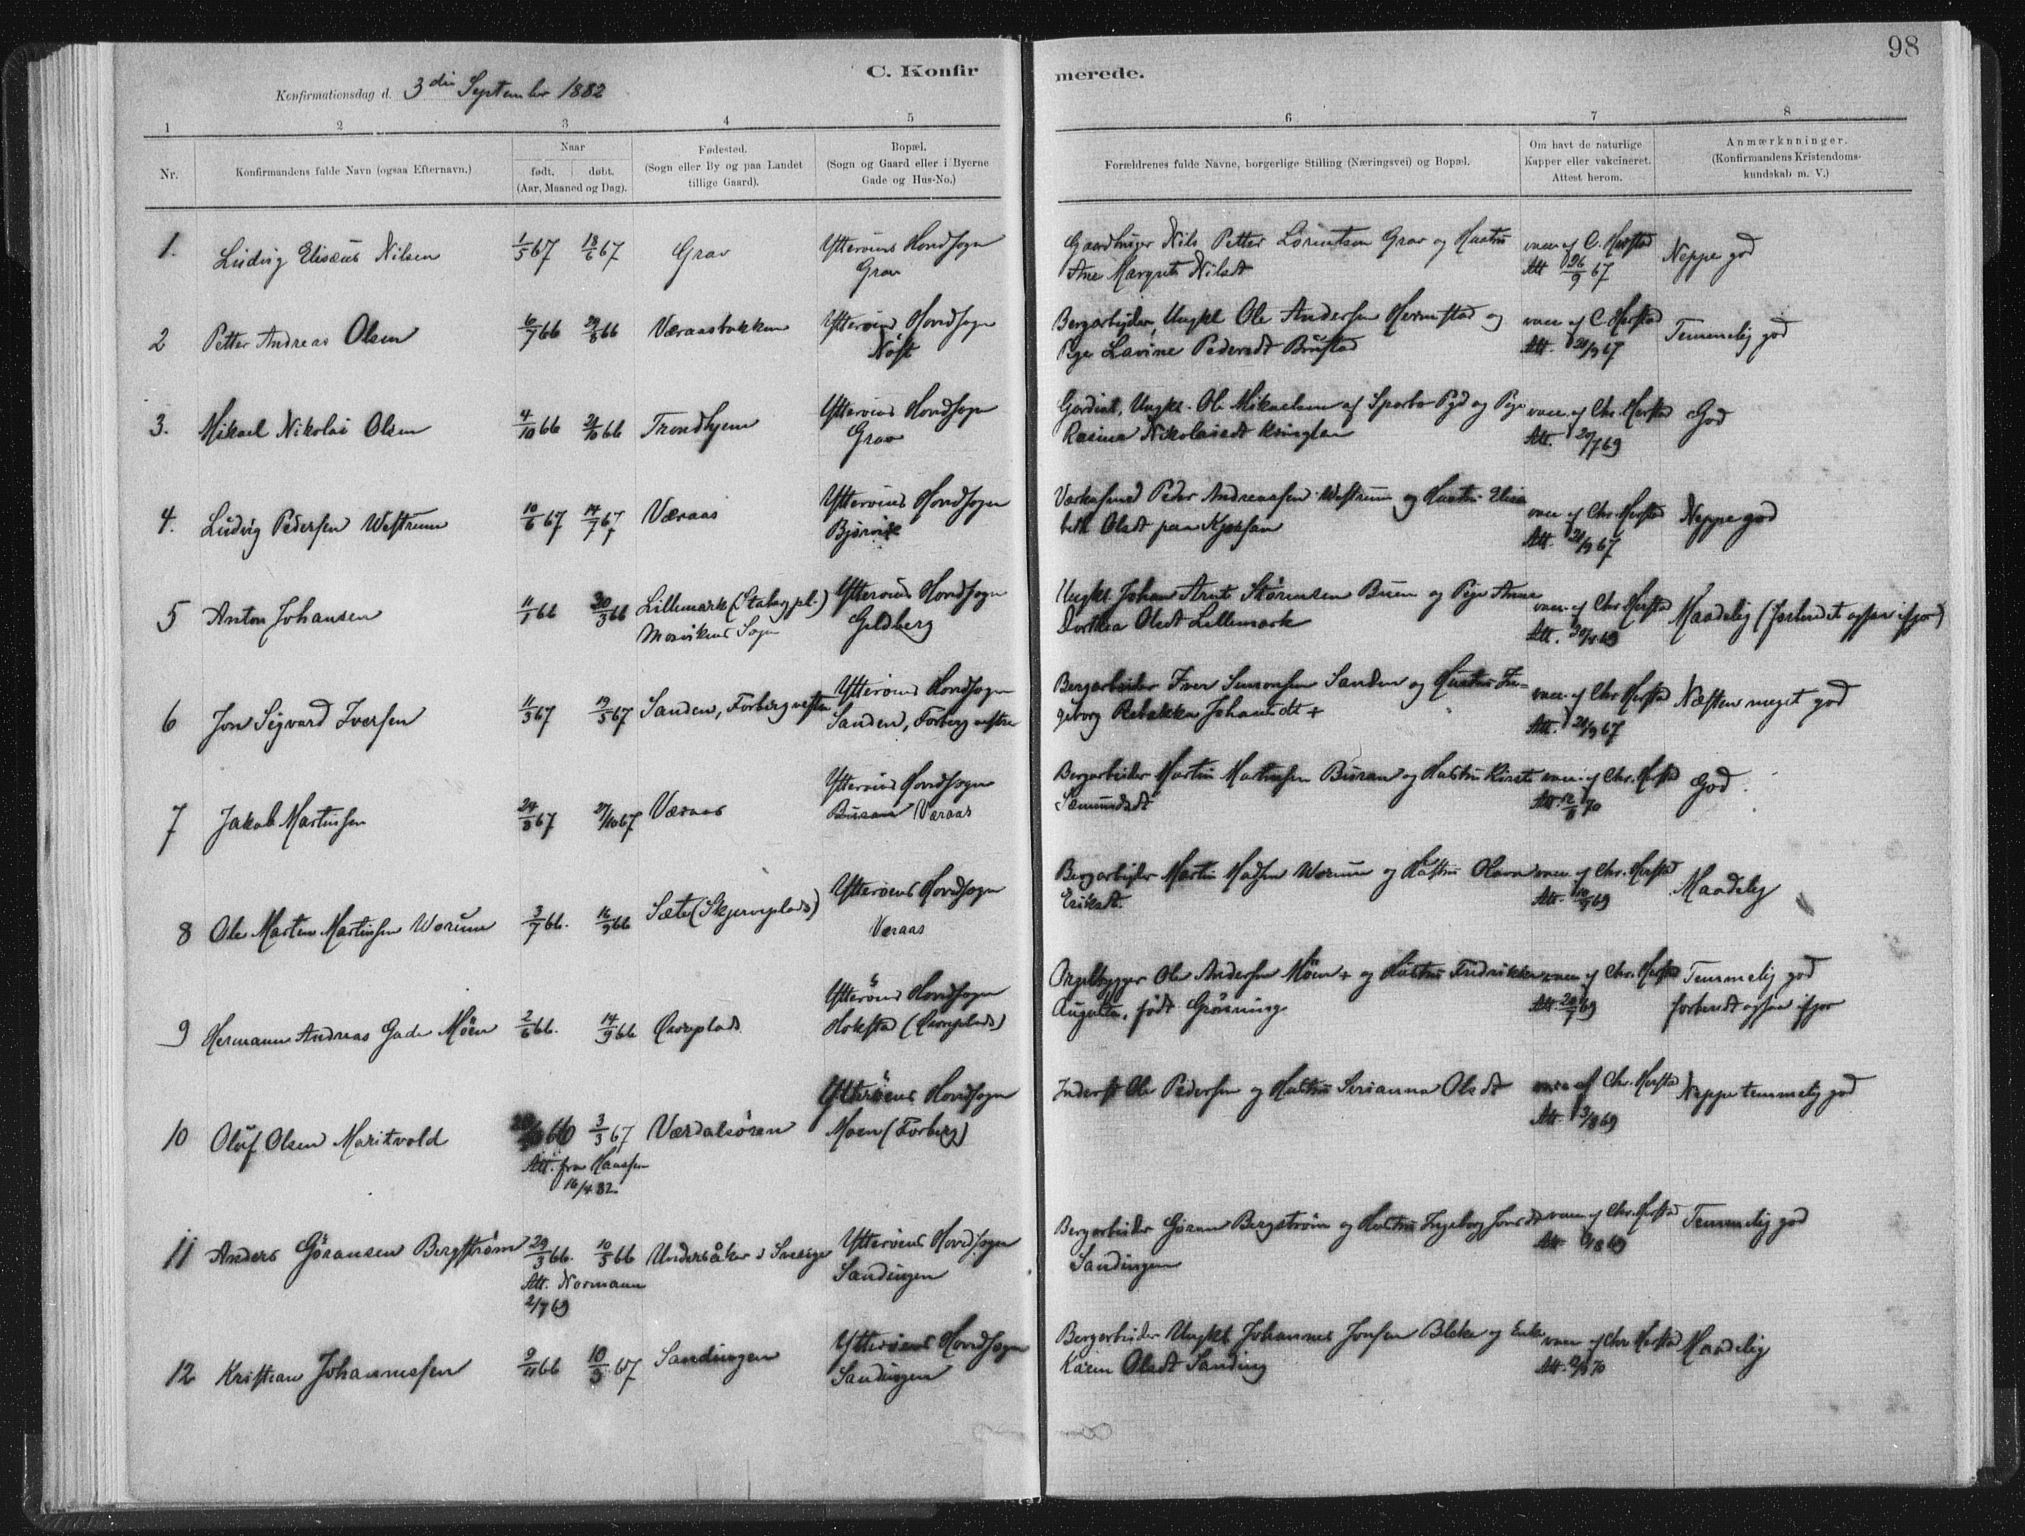 98
C. Konfirmerede.
Konfirmationsdag d. 3die September 1882
1 2 3 4 5 6 7 8
Nr.
Konfirmandens fulde Navn (ogsaa Efternavn.)
Naar
født, døbt.
(Aar, Maaned og Dag).
Fødested.
(Sogn eller By og paa Landet
tillige Gaard).
Bopæl.
(Sogn og Gaard eller i Byerne
Gade og Hus-No.)
Forældrenes fulde Navne, borgerlige Stilling (Næringsvei) og Bopæl.
Om havt de naturlige
Kapper eller vakcineret.
Attest herom.
Anmærkninger.
(Konfirmandens Kristendoms-
kundskab m. V.)
1. Ludvig Elisæus Nilsen 1/5 67 18/6 67 Grav Ytterøens Hovedsogn
Grav
Gaardbruger Nils Petter Lorentsen Grav og Hustru
Ane Margrete Nilsdt
vacc af C. Herstad
Att 26/9 67
Neppe god
2 Petter Andreas Olsen 6/7 66 29/8 66 Væraasbakken Ytterøens Hovedsogn
Nøst
Bergarbejder, Ungkl Ole Andersen Hermstad og
Pige Lavine Pedersdt Brustad
vacc af C. Herstad
Att. 21/9 67
Temmelig god
3. Mikael Nikolai Olsen 4/10 66 21/10 66 Trondhjem Ytterøens Hovedsogn
Grav
Gardist, Ungkl. Ole Mikaelsen af Sparbo Pgd og Pige
Rasine Nikolaisdt
vacc. af Chr. Herstad
Att. 20/7 69
God
4. Ludvig Pedersen Westrum 10/6 67 14/7 67 Væraas Ytterøens Hovedsogn
Bjørvik
Peder Andreassen Westrum og Hustru Elisa
beth Olsdt paa
vacc. af Chr. Herstad
Att. 21/9 67
Neppe god
5 Anton Johansen 11/1 66 30/3 66 Lillemark (Stabergpl.)
Mosvikens Sogn
Ytterøens Hovedsogn
Geldberg
Ungkl Johan Arnt Størensen Buen og Pige Anne
Dorthea Olsdt Lillemark
vacc. af Chr. Herstad
Att.
Maadelig (forberedt ogsaa ifjor)
6 Jon Sigvard Iversen 11/3 67 19/5 67 Sanden, Forberg vestre Ytterøens Hovedsogn
Sanden, Forberg vestre
Bergarbeider Iver Simonsen Sanden og Hustru In-
geborg Rebekka Johansdt +
vacc. af Chr. Herstad
Att. 21/9 67
Næsten meget god
7 Jakob Martinsen 24/8 67 27/10 67 Væraas Ytterøens Hovedsogn
Buran Væraas
Bergarbeider Martin Martinsen Buran og Hustru
Samundsdt
vacc. af Chr. Herstad
Att. 12/8 70
God.
8 Ole Martin Martinsen Worum 3/7 66. 16/9 66 Sæte (Skjerveplads) Ytterøens Hovedsogn
Væraas
Bergarbejder Martin Madsen Worum og Hustru Olava
Eriksdt.
vacc. af Chr. Herstad
Att.
Maadelig
9 Hermann Andreas Gade Möen 2/6 66. 14/9 66 Ytterøens Hovedsogn
Hoksta
Orgelbygger Ole Andersen Möen + og Hustru Fredrikke
Augusta, født Grønning
vacc. af Chr. Herstad
Att. 20/7 69
Temmelig god
forberedt ogsaa ifjor
10 Oluf Olsen Maritvold 66 3/3 67 Værdalsøren Ytterøens Hovedsogn
Moen (Forberg)
Att. fra
16/4 82
Inderst Ole Pedersen og Hustru Serianna Olsdt
vacc af Chr. Herstad
Att. 3/8 69
Neppe temmelig god
11 Anders Göransen Bergström 29/3 66. 10/5 66 Undersåker i Sverige Ytterøens Hovedsogn
Sandingen
Att. Normann
2/7 69
Bergarbeider Göran Bergström og Hustru Ingeborg Jonsdt
Sandingen
vacc. af Chr. Herstad
Att
Temmelig god
12 Kristian Johannesen 9/11 66 10/3 67 Sandingen Ytterøens Hovedsogn
Sandingen
Bergarbeider Ungkl. Johannes Jonsen Bleka og Enke
Karen Olsdt Sanding
vacc af Chr. Herstad
Att.
Maadelig